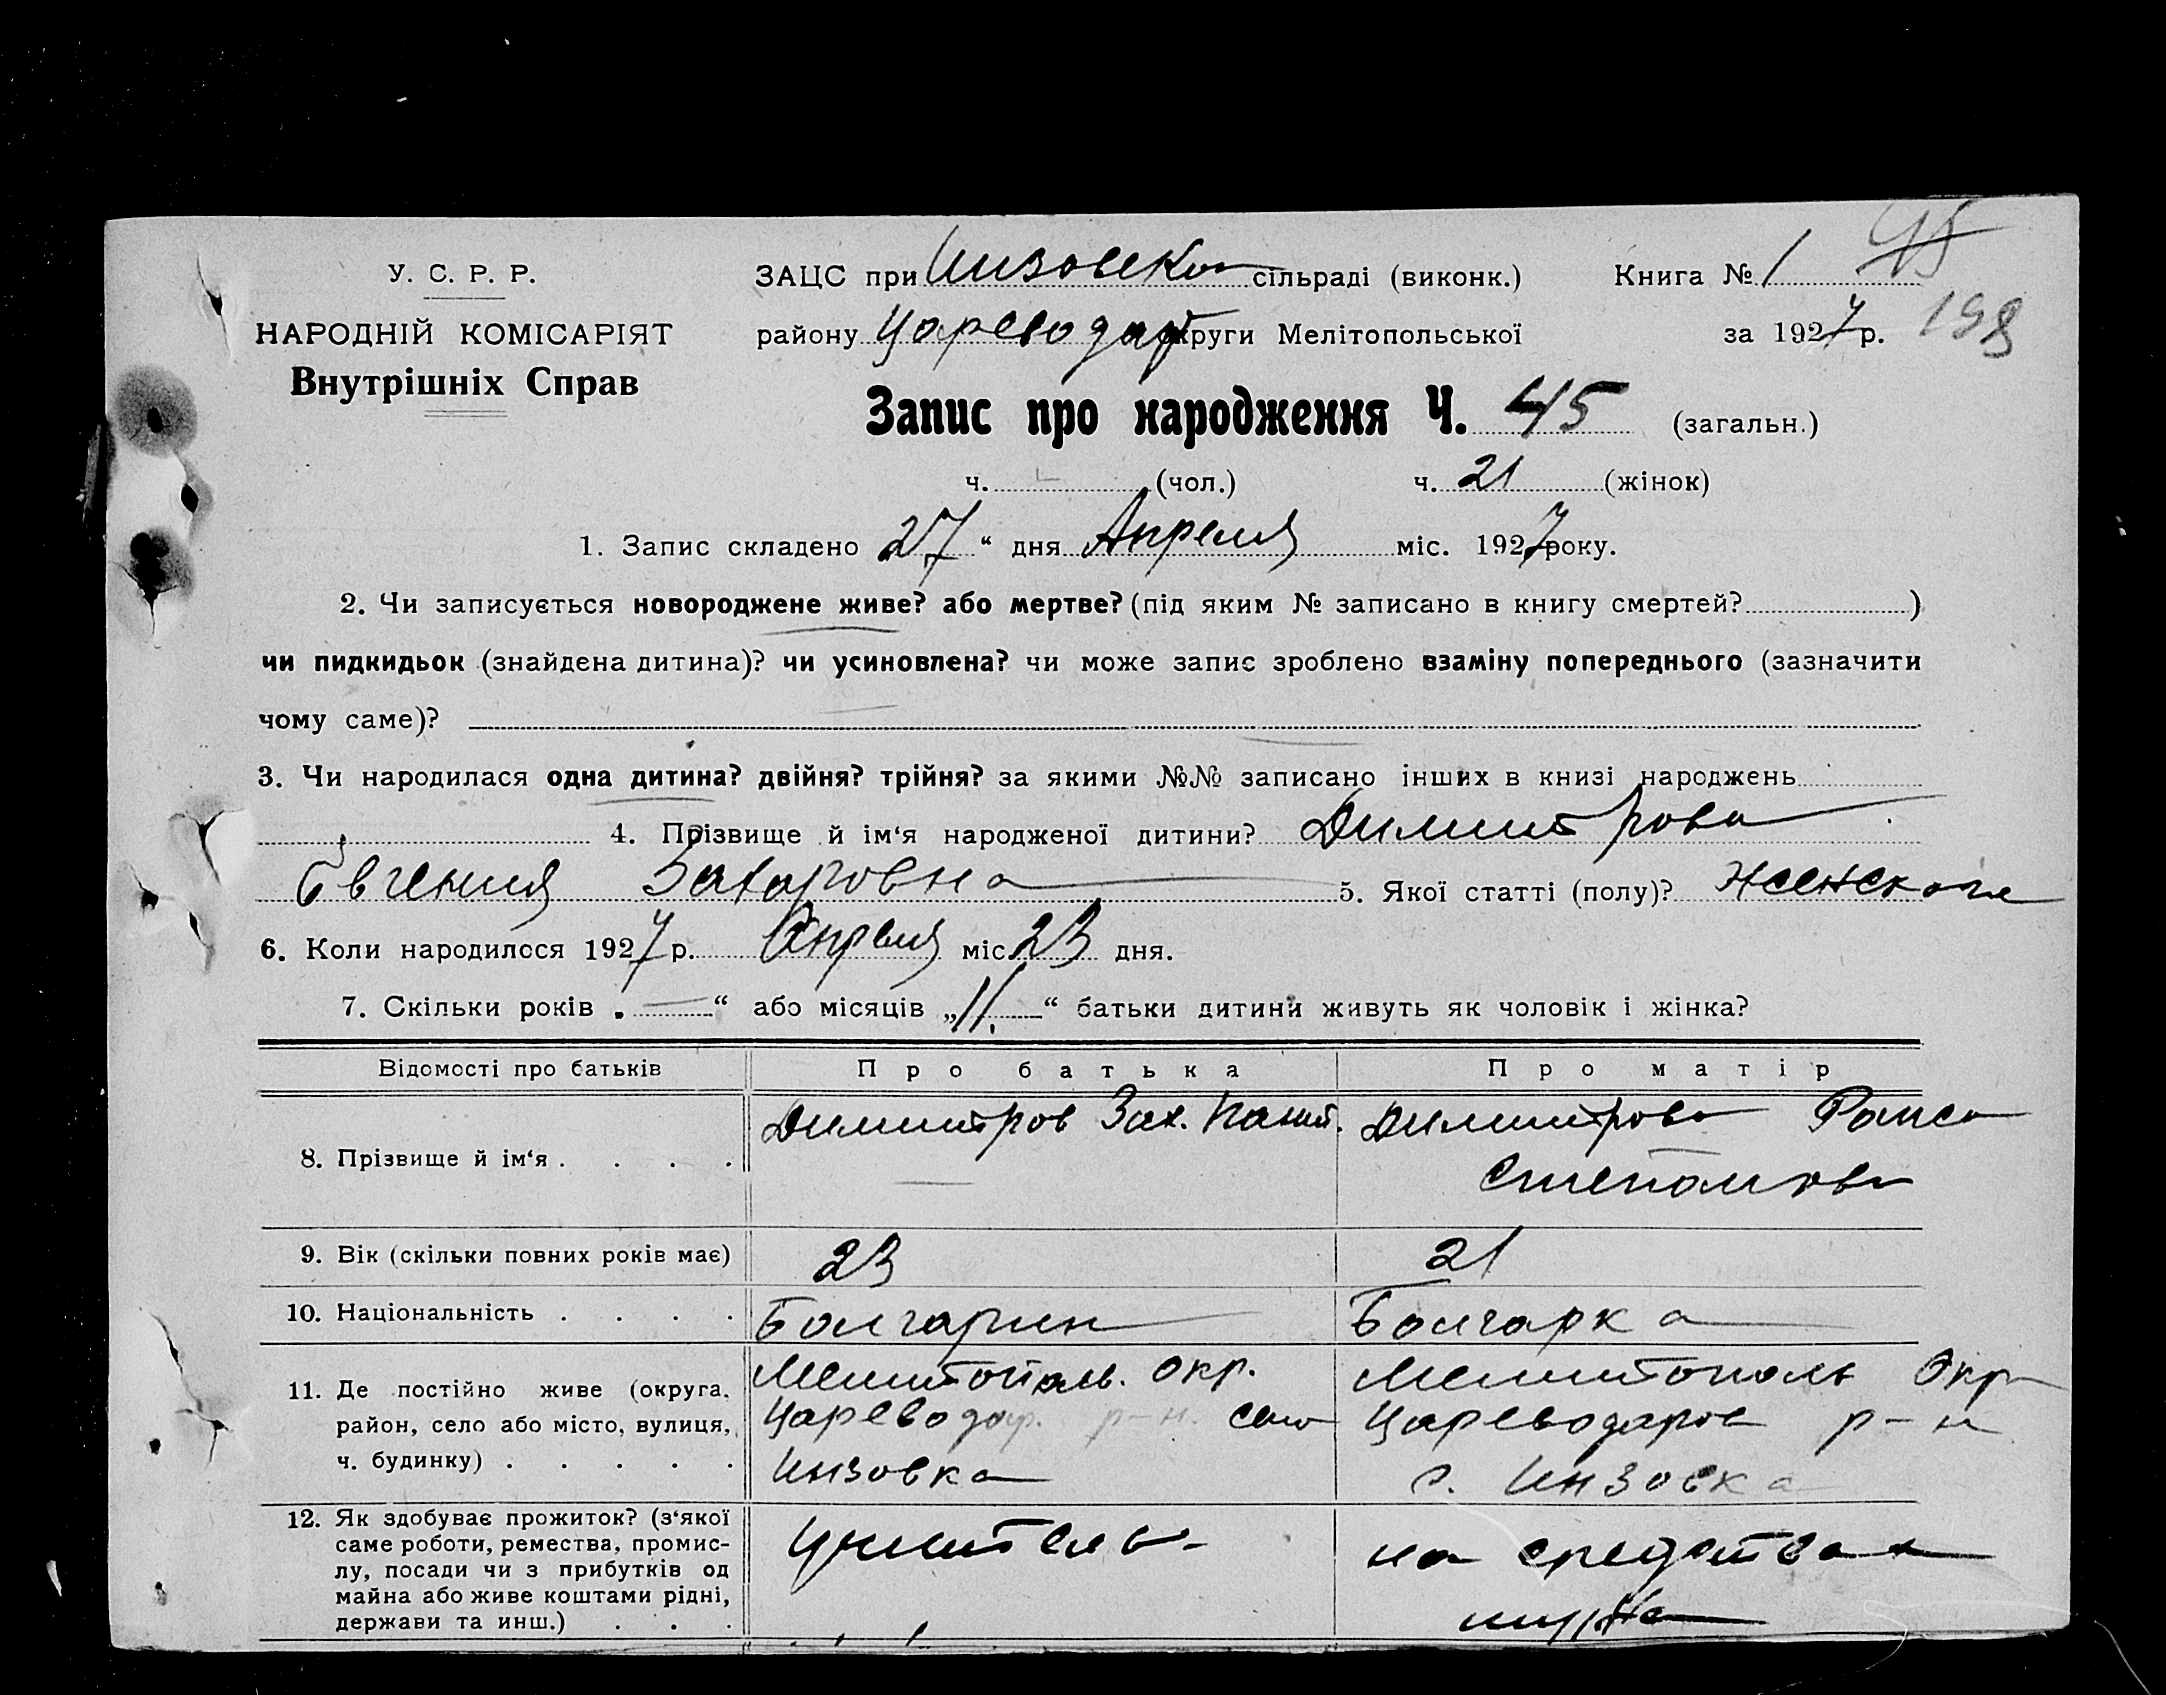 У. С. Р. Р.
НАРОДНІЙ КОМІСАРІЯТ
Внутрішніх Справ
ЗАЦС при Инзовско сільраді (виконк.) Книга № 1 45
району Цареводар округи Мелітопольської за 1927 р. 198
Запис про народження Ч. 45 (загальн.)
ч. (чол.) ч. 21 (жінок)
1. Запис складено 27 “ дня Апреля міс. 1927 року.
2. Чи записується новороджене живе? або мертве? (під яким № записано в книгу смертей? )
чи пидкидьок (знайдена дитина)? чи усиновлена? чи може запис зроблено взаміну попереднього (зазначити
чому саме)?
3. Чи народилася одна дитина? двійня? трійня? за якими №№ записано інших в книзі народжень
4. Прізвище й ім‘я народженої дитини? Димитрова
Евгения Захаровна 5. Якої статті (полу)? Женского
6. Коли народилося 1927 р. Апреля міс. 23 дня.
7. Скільки років „ — “ або місяців „ 11. “ батьки дитини живуть як чоловік і жінка?
Відомості про батьків Про батька Про матір
8. Прізвище й ім‘я . . . . Димитров Зах. Димитрова Раиса
Степановна
9. Вік (скільки повних років має) 23 21
10. Національність . . . . Болгарин Болгарка
11. Де постійно живе (округа, район, село або місто, вулиця, ч. будинку) . . . . . Мелитополь. окр. Мелитополь Окр
Цареводар. р-н. село Цареводаров р-н
Инзовка с. Инзовка
12. Як здобуває прожиток? (з‘якої саме роботи, ремества, промислу, посади чи з прибутків од майна або живе коштами рідні, держави та инш.) . . . Учитель- на средствах
мужа